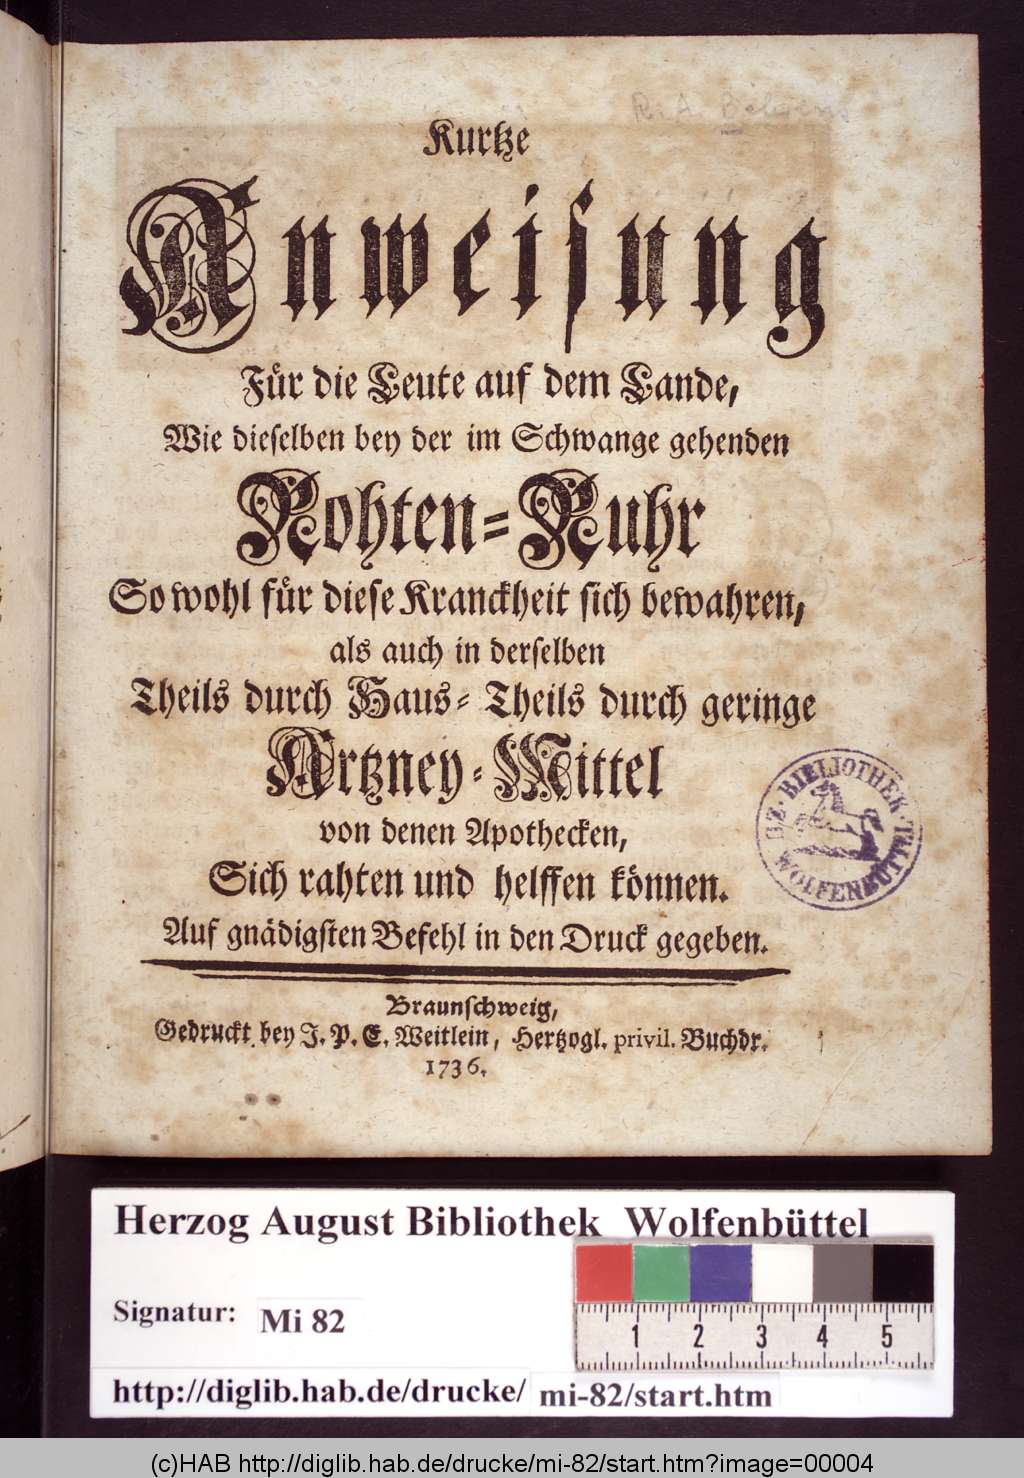 R. A. Behrens
Kurtze
Anweisung
Für die Leute auf dem Lande,
Wie dieselben bey der im Schwange gehenden
Rohten-Ruhr
So wohl für diese Kranckheit sich bewahren,
als auch in derselben
Theils durch Haus- Theils durch geringe
Artzney-Mittel
von denen Apothecken,
Sich rahten und helffen können.
Auf gnädigsten Befehl in den Druck gegeben.
BIBLIOTHEK
WOLFENBÜTTEL
Braunschweig,
Gedruckt bey J. P. E. Weitlein, Hertzogl. privil. Buchdr.
1736.
Herzog August Bibliothek Wolfenbüttel
Signatur: Mi 82
1 2 3 4 5
http://diglib.hab.de/drucke/ mi-82/start.htm
(c)HAB http://diglib.hab.de/drucke/mi-82/start.htm?image=00004